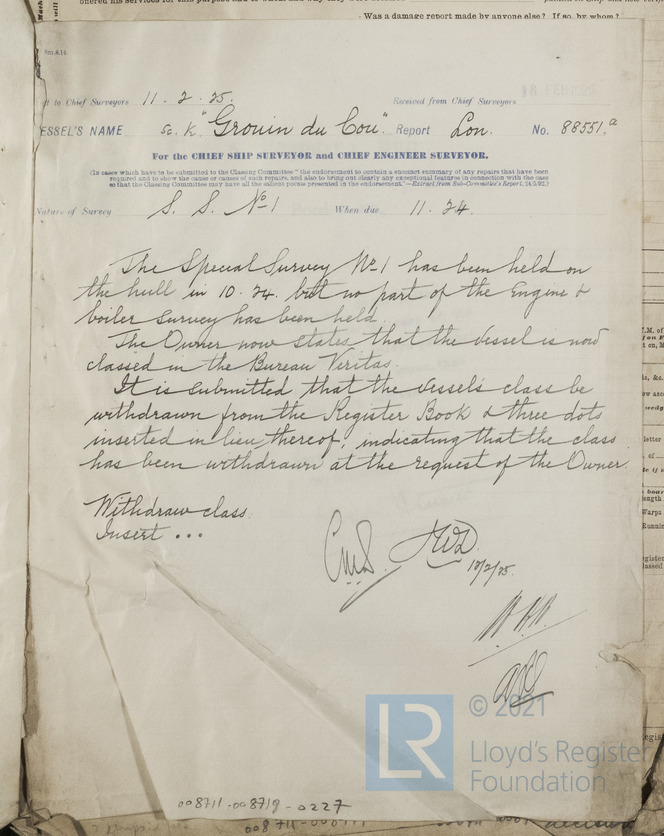 Was a damage report made by anyone else? If so, by whom?
to Chief Surveyors 11 . 2 . 25. Received from Chief Surveyors
ESSEL'S NAME Sc. K. "Grouin du Cou" Report Lon. No. 88551.a
For the CHIEF SHIP SURVEYOR and CHIEF ENGINEER SURVEYOR.
(In cases which have to be submitted to the Classing Committee "the endorsement to contain a succinct summary of any repairs that have been
required and to show the cause or causes of such repairs, and also to bring out clearly any exceptional features in connection with the case
so that the Classing Committee may have all the salient points presented in the endorsement."—Extract from Sub-Committee's Report,
Nature of Survey S. S. No 1 When due 11. 24.
The Special Survey No 1 has been held on
the hull in 10. 24. but no part of the Engine &
boiler survey has been held.
The Owner now states that the vessel is now
classed in the Bureau Veritas.
It is submitted that the vessel's class be
withdrawn from the Register Book & three dots
inserted in lieu thereof, indicating that the class
has been withdrawn at the request of the Owner.
Withdraw class
Insert ...
© 2021
LR Lloyd's Register
Foundation
008711-008719-0227